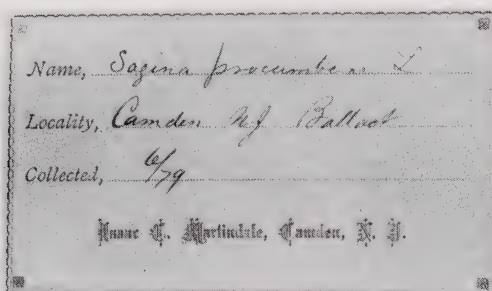 Name, Sagina procumbens L
Locality, Camden NJ Ballast
Collected, 6/79
Isaac C. Martindale, Camden, N. J.